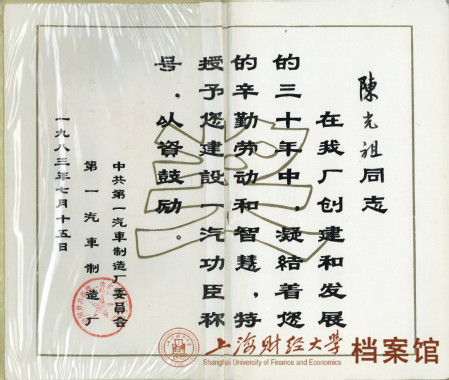 陳光祖同志
在我厂创建和发展
的三十年中，凝结着您
的辛勤劳动和智慧，特
授予您建設一汽功臣称
号，以資鼓励。
中共第一汽車制造厂委員会
第一汽車制造厂
一九八三年七月十五日
奖
上海财经大学
Shanghai University of Finance and Economics
档案馆